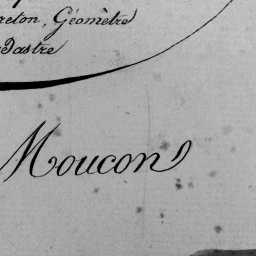 reton, Géomètre
dastre
Moucon